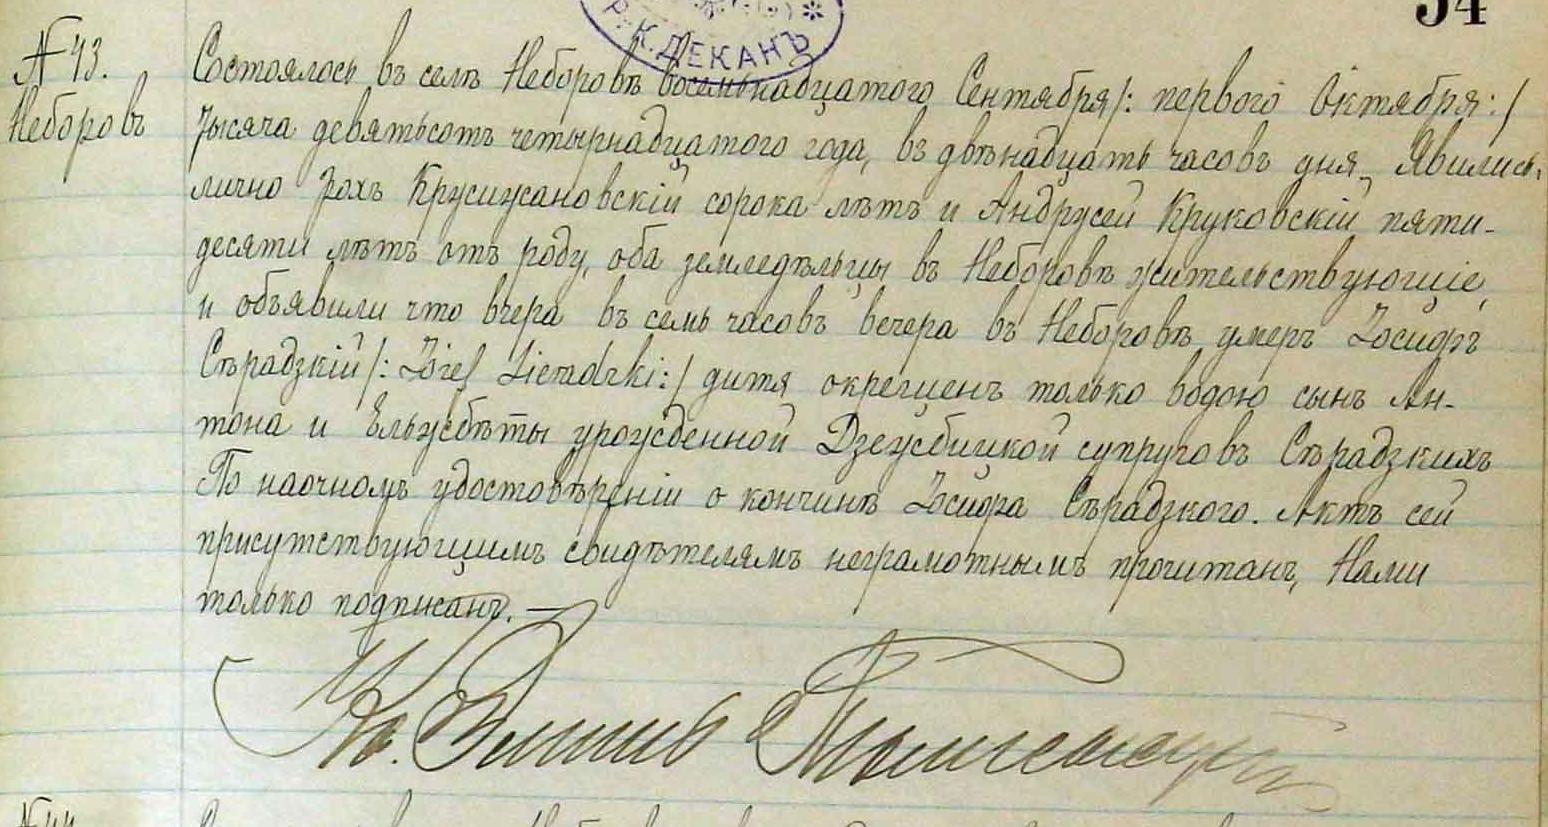 54
Р. К. ДЕКАНЪ
№ 43.
Неборовъ
Состоялось въ селѣ Неборовѣ восемьнадцатого Сентября /: первого Октября :/
тысяча девятьсотъ четырнадцатого года, въ двѣнадцать часовъ дня. Явились
лично Рохъ Кржижановскій сорока лѣтъ и Андржей Круковскій пяти-
десяти лѣтъ отъ роду, оба земледѣльцы въ Неборовѣ жительствующіе,
и объявили что вчера въ семь часовъ вечера въ Неборовѣ умеръ Іосифъ
Сѣрадзкій /: Józef Sieradzki :/ дитя окрещенъ только водою сынъ Ан-
тона и Ельжбѣты урожденной Дзежбицкой супруговъ Сѣрадзкихъ
По наочномъ удостовѣреніи о кончинѣ Іосифа Сѣрадзкого. Актъ сей
присутствующимъ свидѣтелямъ неграмотнымъ прочитанъ, Нами
только подписанъ. —
Кс.
№ 44